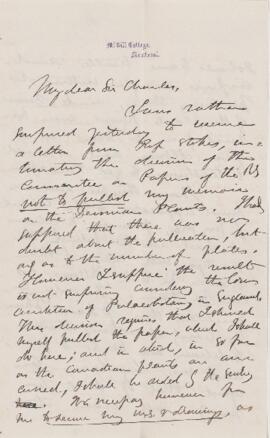 McGill College
Montreal
My dear Sir Charles,
I was rather
surprised yesterday to receive
a letter from Prof Stokes, in-
timating the decision of the
Committee on Papers of the RS
not to publish my memoir
on the Devonian Plants. I had
supposed that there was no
doubt about the publication, but
as to the number of plates.
However I suppose the result
is not surprising considering the low
condition of Palaeobotany in England.
This decision requires that I should
myself publish the paper, which I shall
do here; and in which, in so far
as the Canadian plants are con-
cerned, I shall be aided by the Survey
here. It is necessary however for
me to secure my m.s. & drawings, as